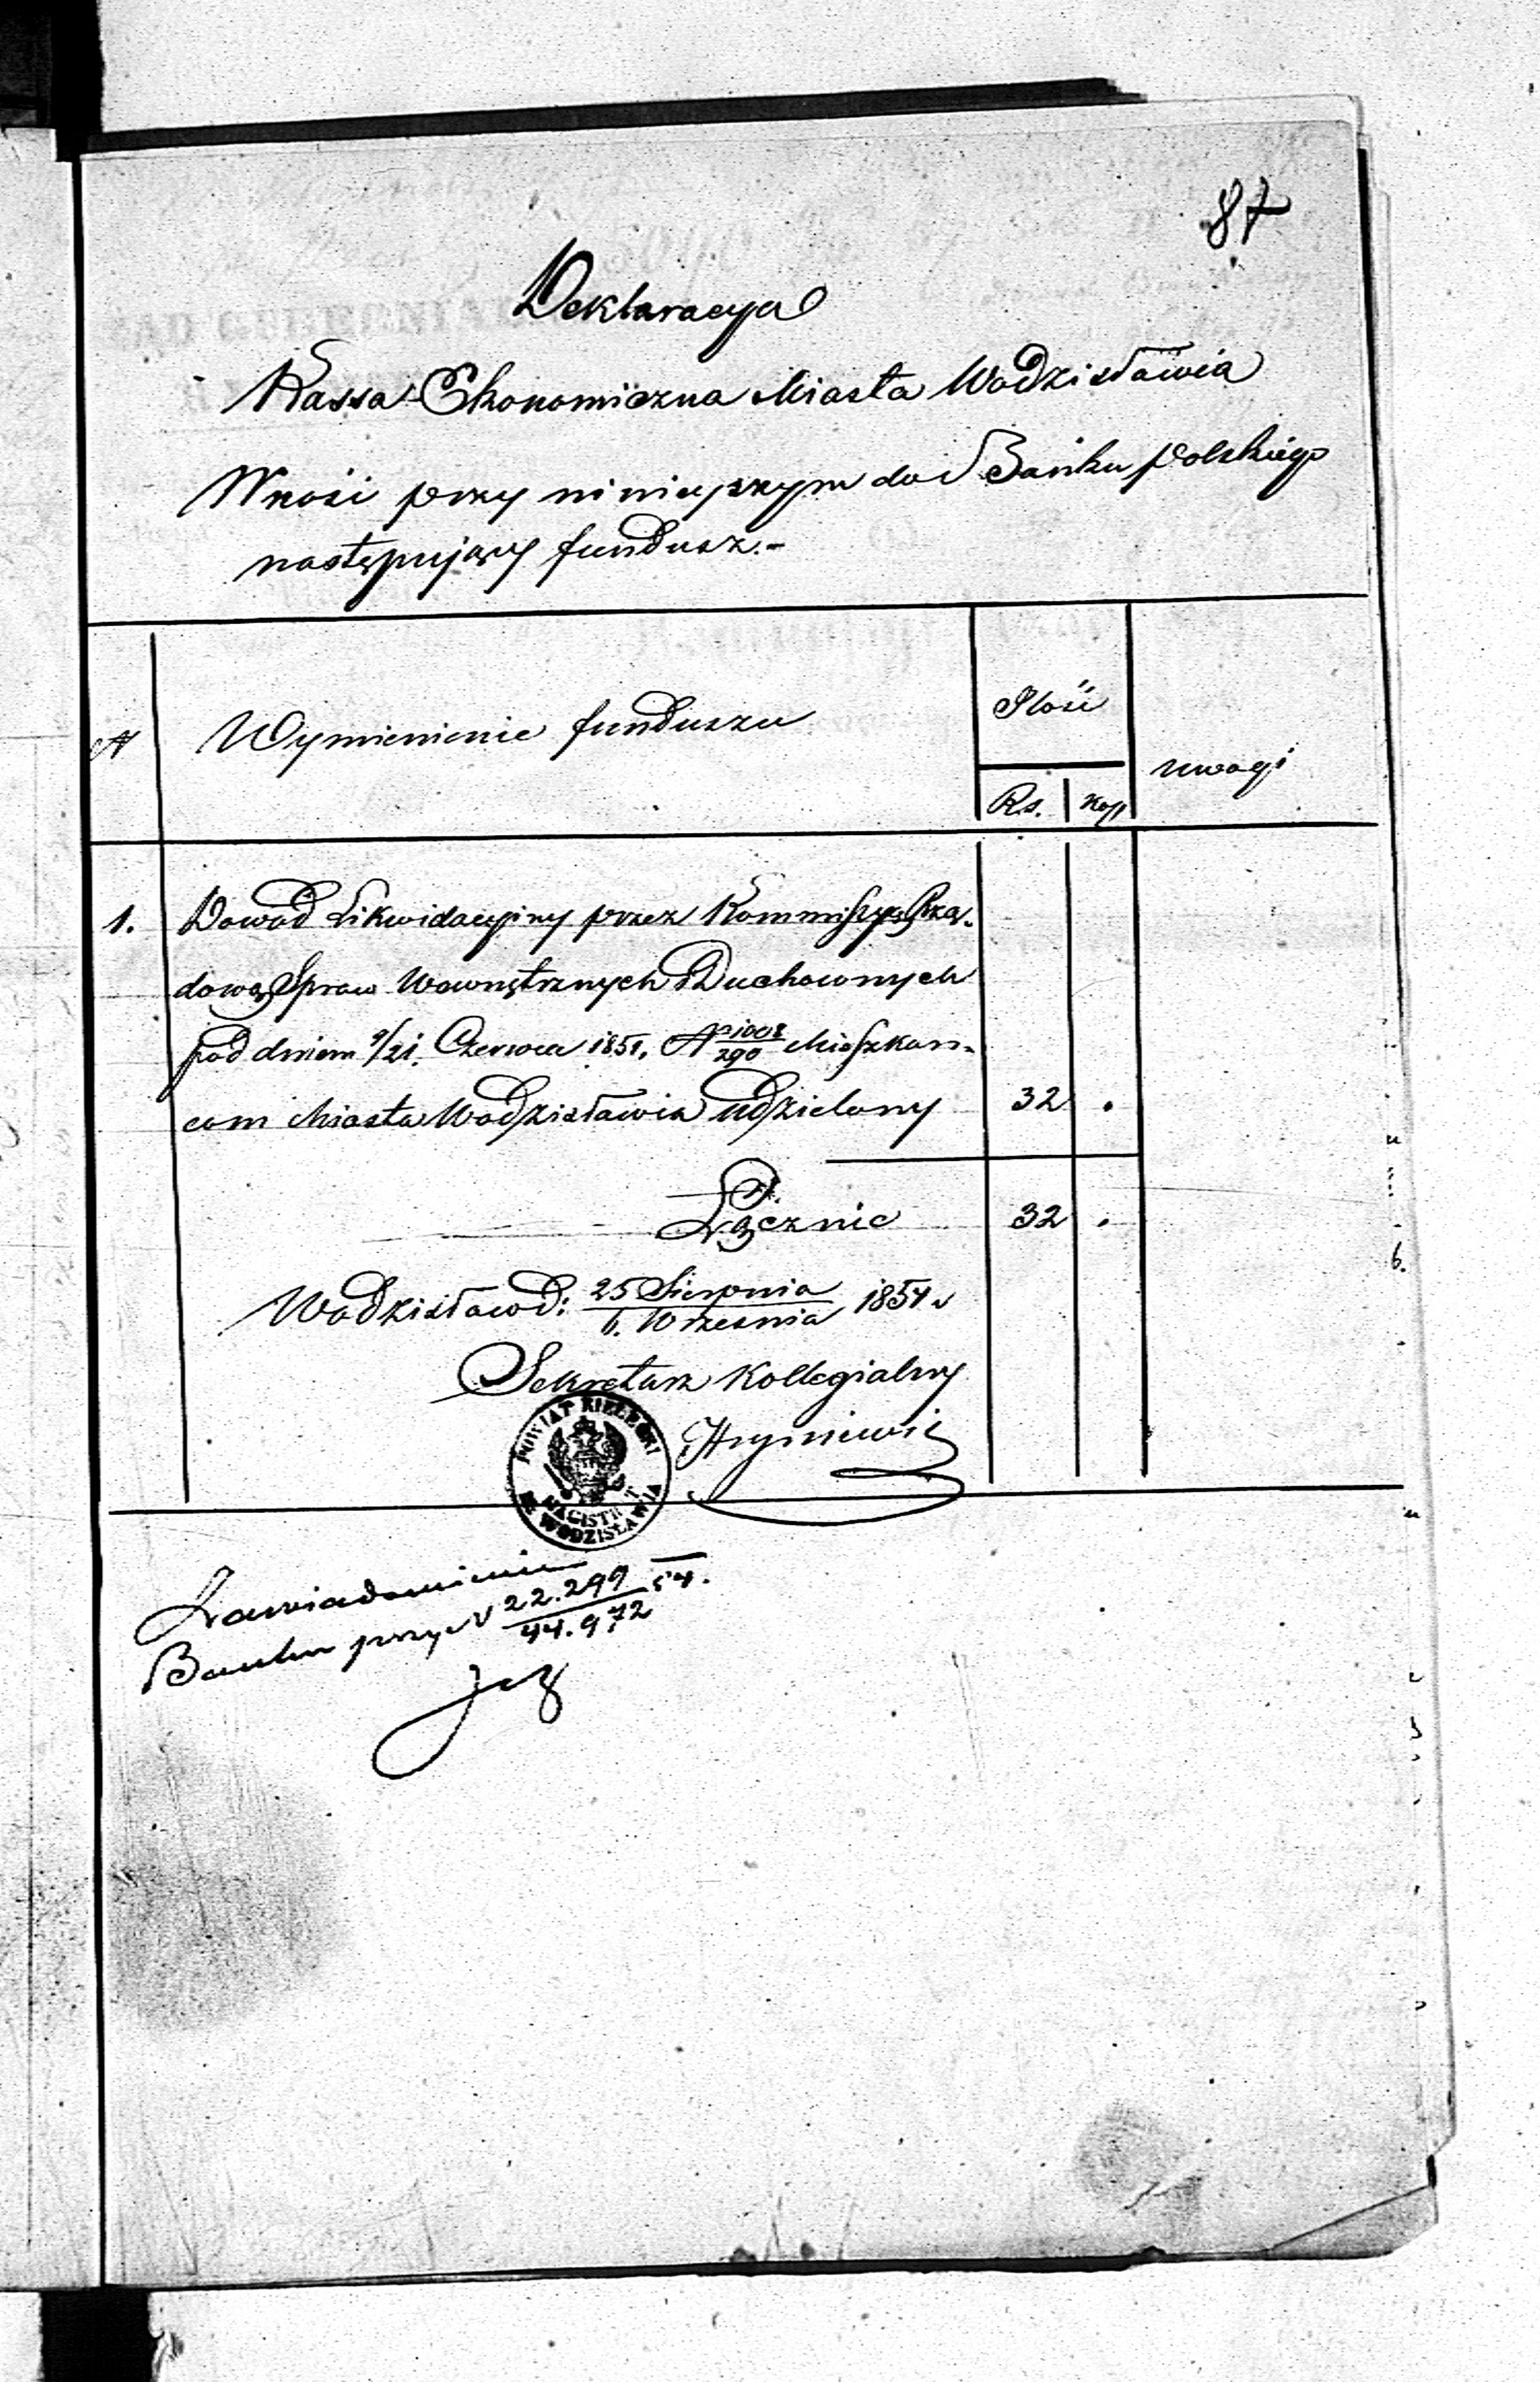 87
Deklaracya
Kassa Ekonomiczna Miasta Wodzisławia
Wnosi przy niniejszym do Banku Polskiego
następujący fundusz.-
N Wymienienie funduszu Ilość uwagi
Rs. Kop
1. Dowód Likwidacyjny przez Kommissyą Rzą-
dową Spraw Wewnętrznych i Duchownych
pod dniem 9/21. Czerwca 1851. N 1008/290 Mieszkań-
com Miasta Wodzisławia udzielony 32 .
Łącznie 32 .
Wodzisław d: 25 Sierpnia / 6. Września 1854 r
Sekretarz Kollegialny
Hryniewicz
POWIAT KIELECKI
MAGISTRAT
M. WODZISŁAWIA
Zawiadomienie
Banku przy N 22.299/44.972 54.